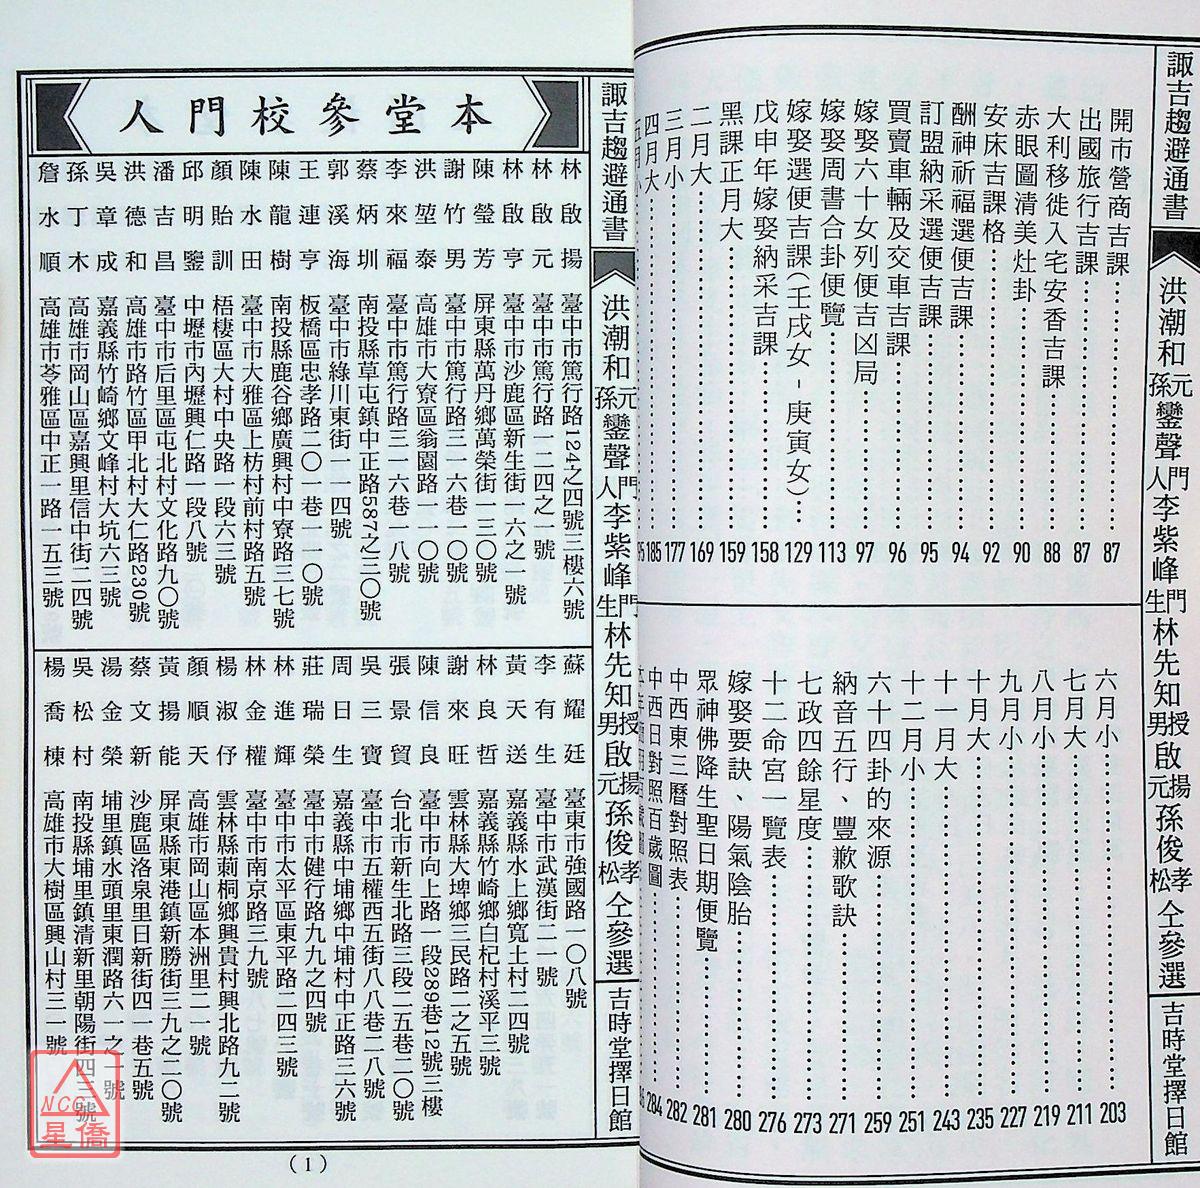 諏吉趨避通書
洪潮和 元孫鑾聲 門人李紫峰 門生林先知 授男啟揚元 孫俊孝松 仝參選
吉時堂擇日館
開市營商吉課 87
出國旅行吉課 87
大利移徙入宅安香吉課 88
赤眼圖清美灶卦 90
安床吉課格 92
酬神祈福選便吉課 94
訂盟納采選便吉課 95
買賣車輛及交車吉課 96
嫁娶六十女列便吉凶局 97
嫁娶周書合卦便覽 113
嫁娶選便吉課(壬戌女-庚寅女) 129
戊申年嫁娶納采吉課 158
黑課正月大 159
二月大 169
三月小 177
四月大 185
六月小 203
七月大 211
八月小 219
九月小 227
十月大 235
十一月大 243
十二月小 251
六十四卦的來源 259
納音五行、豐歉歌訣 271
七政四餘星度 273
十二命宮一覽表 276
嫁娶要訣、陽氣陰胎 280
眾神佛降生聖日期便覽 281
中西東三曆對照表 282
中西日對照百歲圖 284
諏吉趨避通書
洪潮和 元孫鑾聲 門人李紫峰 門生林先知 授男啟揚元 孫俊孝松 仝參選
吉時堂擇日館
本堂參校門人
林啟揚 臺中市篤行路124之四號三樓六號
林啟元 臺中市篤行路一二四之一號
林啟亨 臺中市沙鹿區新生街一六之一號
陳瑩芳 屏東縣萬丹鄉萬榮街一三〇號
謝竹男 臺中市篤行路三一六巷一〇號
洪堃泰 高雄市大寮區翁園路一一〇號
李來福 臺中市篤行路三一六巷一八號
蔡炳圳 南投縣草屯鎮中正路587之二〇號
郭溪海 臺中市綠川東街一一四號
王連亨 板橋區忠孝路二〇一巷一一〇號
陳龍樹 南投縣鹿谷鄉廣興村中寮路三七號
陳水田 臺中市大雅區上枋村前村路五號
顏貽訓 梧棲區大村中央路一段六三號
邱明鑒 中壢市內壢興仁路一段八號
潘吉昌 臺中市后里區屯北村文化路九〇號
洪德和 高雄市路竹區甲北村大仁路230號
吳章成 嘉義縣竹崎鄉文峰村大坑六三號
孫丁木 高雄市岡山區嘉興里信中街二四號
詹水順 高雄市苓雅區中正一路一五三號
蘇耀廷 臺東市強國路一〇八號
李有生 臺中市武漢街二一號
黃天送 嘉義縣水上鄉寬土村二四號
林良哲 嘉義縣竹崎鄉白杞村溪平三號
謝來旺 雲林縣大埤鄉三民路二之五號
陳信良 臺中市向上路一段289巷12號三樓
張景貿 台北市新生北路三段二五巷二〇號
吳三寶 臺中市五權西五街八八巷二八號
周日生 嘉義縣中埔鄉中埔村中正路三六號
莊瑞榮 臺中市健行路九九之四號
林進輝 臺中市太平區東平路二四三號
林金權 臺中市南京路三九號
楊淑伃 雲林縣莿桐鄉興貴村興北路九二號
顏順天 高雄市岡山區本洲里二一號
黃揚能 屏東縣東港鎮新勝街三九之二〇號
蔡文新 沙鹿區洛泉里日新街四一巷五號
湯金榮 埔里鎮水頭里東潤路六一之一號
吳松村 南投縣埔里鎮清新里朝陽街四三號
楊喬棟 高雄市大樹區興山村三一號
(1)
NCC
星僑